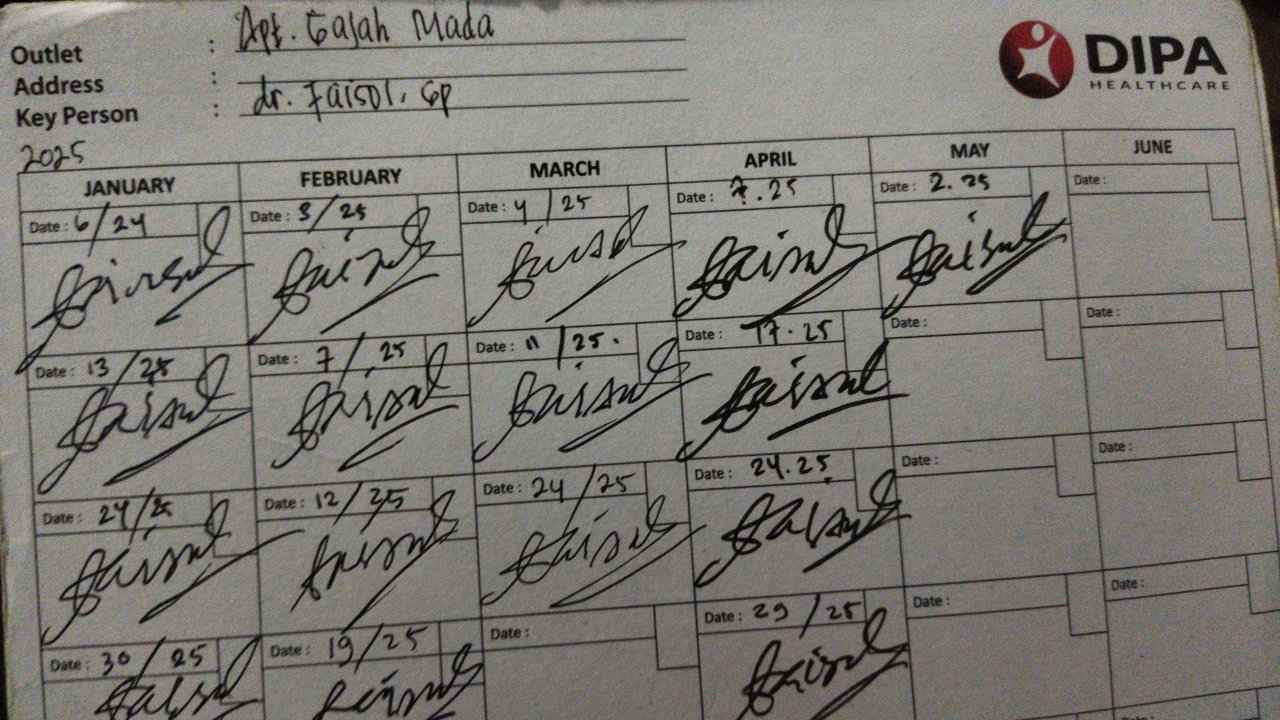 Outlet : Apt. Gajah Mada
Address :
Key Person : dr. Faisol, Gp
DIPA
HEALTHCARE
2025
JANUARY FEBRUARY MARCH APRIL MAY JUNE
Date : 6/24 Date : 3/25 Date : 4/25 Date : 7.25 Date : 2.25 Date :
Faisol Faisol Faisol Faisol Faisol
Date : 13/25 Date : 7/25 Date : 11/25. Date : 17.25 Date : Date :
Faisol Faisol Faisol Faisol
Date : 24/25 Date : 12/25 Date : 24/25 Date : 24.25 Date : Date :
Faisol Faisol Faisol Faisol
Date : 30/25 Date : 19/25 Date : Date : 29/25 Date : Date :
Faisol Faisol Faisol